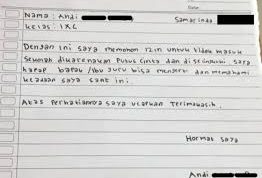 Nama : Andi
Samarinda
Kelas : IX C
Dengan ini saya memohon izin untuk tidak masuk
sekolah dikarenakan Putus Cinta dan disini saya
harap bapak/ibu guru bisa mengerti dan memahami
keadaan saya saat ini.
Atas Perhatiannya saya ucapkan Terimakasih.
Hormat saya
Andi